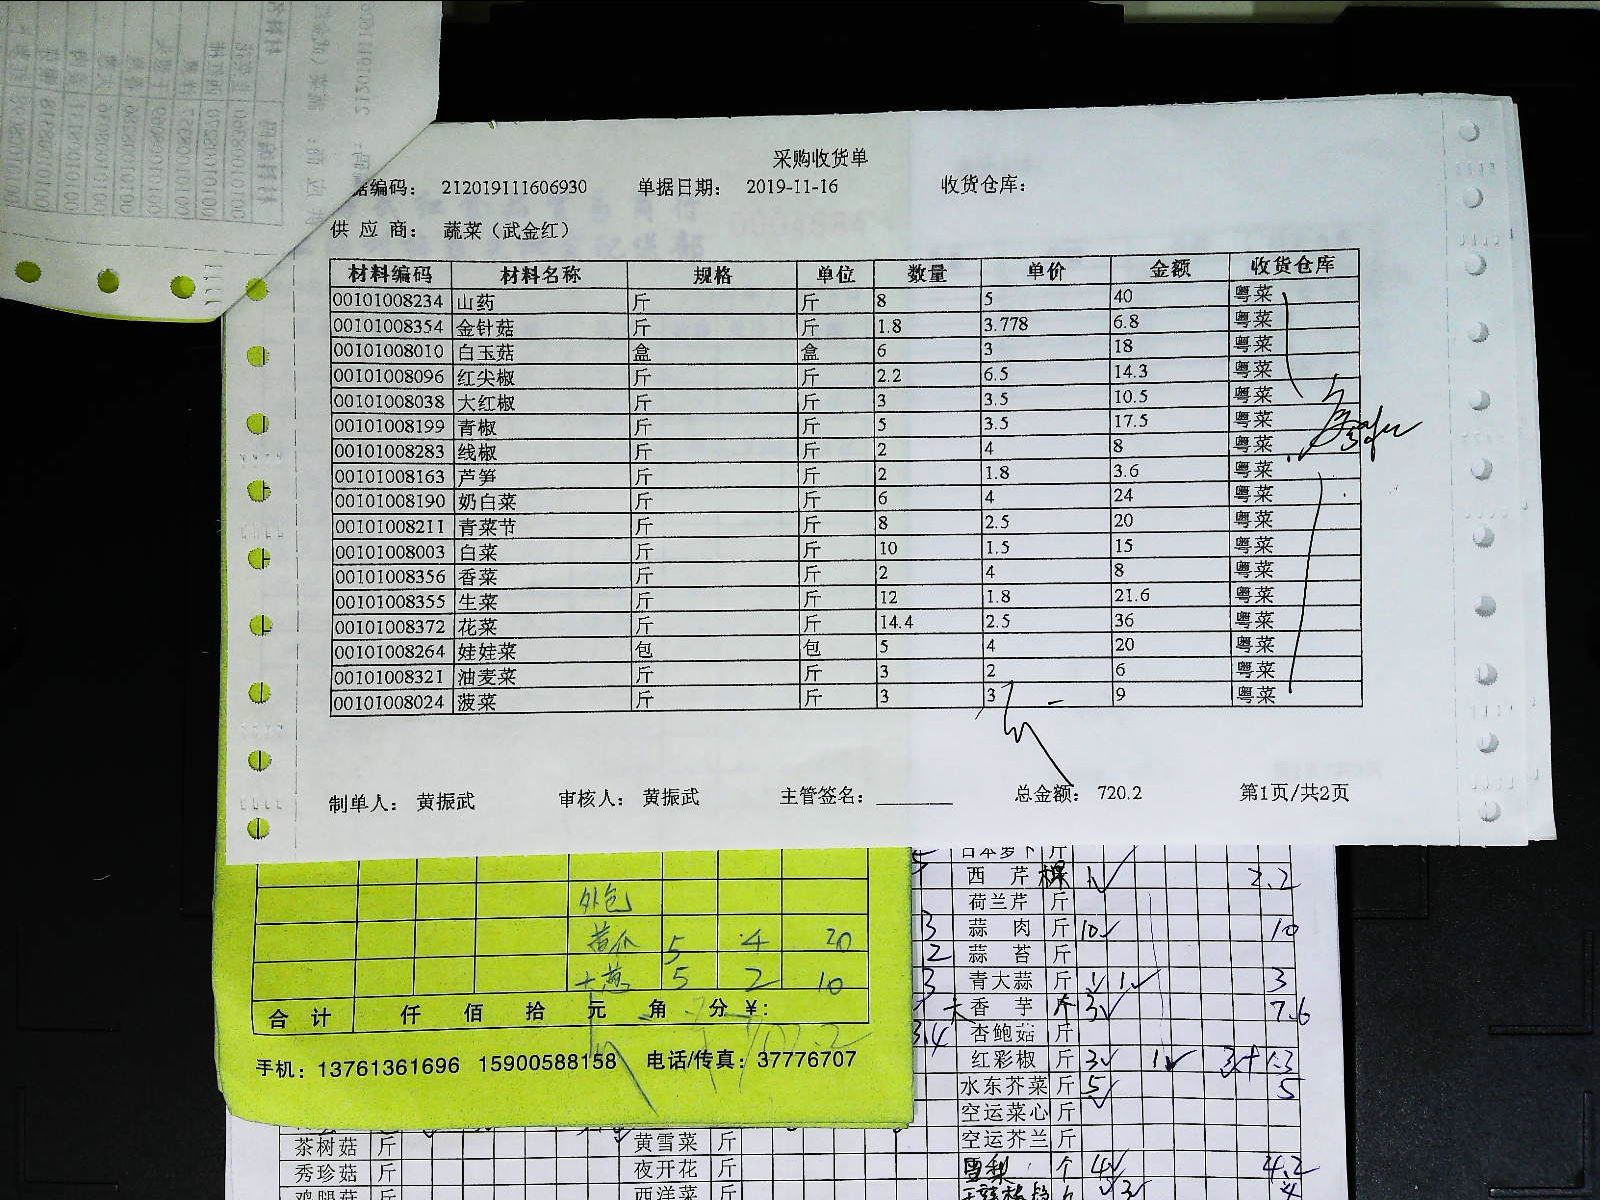 采购收货单
据编码： 212019111606930 单据日期： 2019-11-16 收货仓库：
供 应 商： 蔬菜（武金红）
材料编码 材料名称 规格 单位 数量 单价 金额 收货仓库
00101008234 山药 斤 斤 8 5 40 粤菜
00101008354 金针菇 斤 斤 1.8 3.778 6.8 粤菜
00101008010 白玉菇 盒 盒 6 3 18 粤菜
00101008096 红尖椒 斤 斤 2.2 6.5 14.3 粤菜
00101008038 大红椒 斤 斤 3 3.5 10.5 粤菜
00101008199 青椒 斤 斤 5 3.5 17.5 粤菜
00101008283 线椒 斤 斤 2 4 8 粤菜
00101008163 芦笋 斤 斤 2 1.8 3.6 粤菜
00101008190 奶白菜 斤 斤 6 4 24 粤菜
00101008211 青菜节 斤 斤 8 2.5 20 粤菜
00101008003 白菜 斤 斤 10 1.5 15 粤菜
00101008356 香菜 斤 斤 2 4 8 粤菜
00101008355 生菜 斤 斤 12 1.8 21.6 粤菜
00101008372 花菜 斤 斤 14.4 2.5 36 粤菜
00101008264 娃娃菜 包 包 5 4 20 粤菜
00101008321 油麦菜 斤 斤 3 2 6 粤菜
00101008024 菠菜 斤 斤 3 3 9 粤菜
制单人： 黄振武 审核人： 黄振武 主管签名： 总金额： 720.2 第1页/共2页
外包
5 4 20
大葱 5 2 10
合 计 仟 佰 拾 元 角 分 ¥:
手机：13761361696 15900588158 电话/传真：37776707
日本萝卜 斤
西 芹 棵 1 2.2
荷兰芹 斤
3 蒜 肉 斤 10 10
2 蒜 苔 斤
3 青大蒜 斤 1 1 3
大香 芋 个 3 7.6
3.4 杏鲍菇 斤
红彩椒 斤 3 1 3+1.3
水东芥菜 斤 5 5
空运菜心 斤
茶树菇 斤 黄雪菜 斤 空运芥兰 斤
秀珍菇 斤 夜开花 斤 雪梨 个 4 4.2
鸡腿菇 斤 西洋菜 斤 3 4